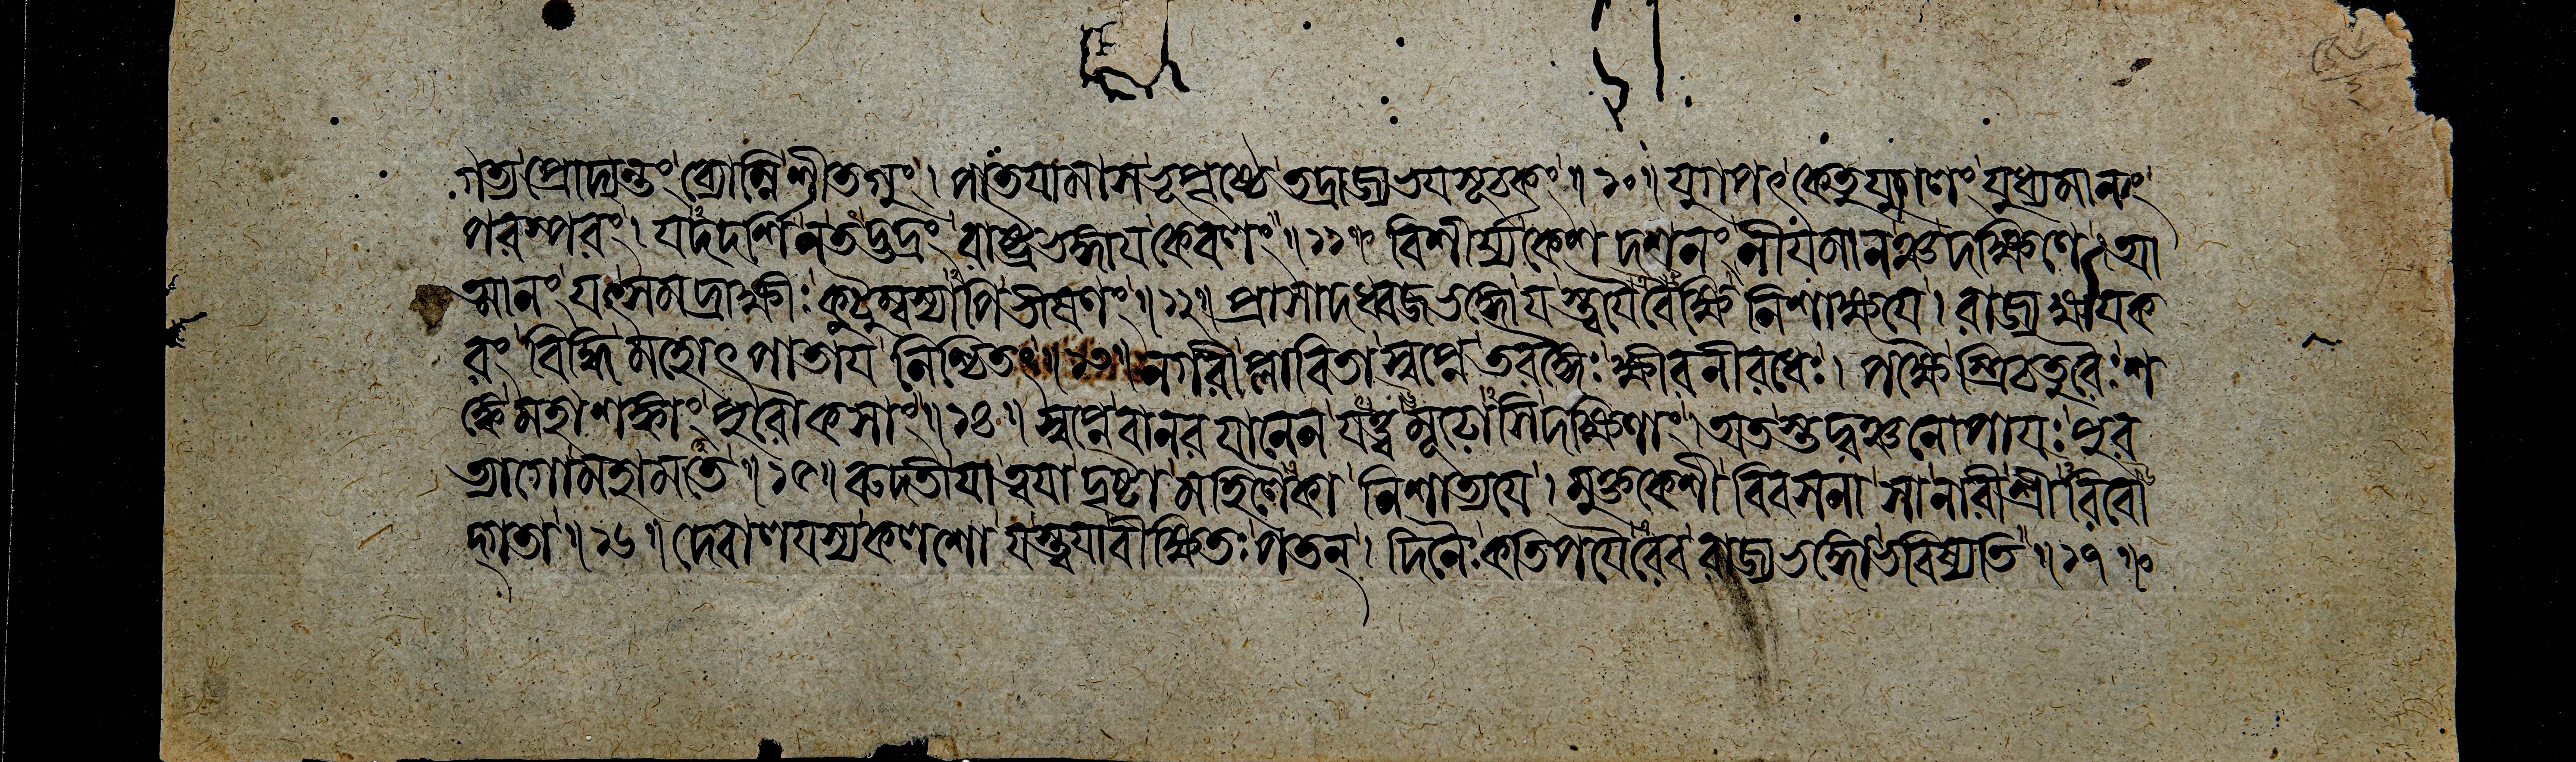 গত্র প্রোদ্যন্তং ব্যোম্নি শীতগুং। পাতযামাস ভূপৃষ্ঠে তদ্রাজ্যভযসূচকং॥১০॥ যুগপৎ কেতুযুগ্মণং যুধ্যমানং
পরস্পরং। যদদর্শি নতদ্ভদ্রং রাষ্ট্রভঙ্গায কেবলং॥১১॥ বিশীর্য্যৎকেশ দশনং নীযমানঞ্চ দক্ষিণে। আ
ত্মানং যৎ সমদ্রাক্ষীঃ কুটুম্বস্যাপি ভীষণং॥১২॥ প্রাসাদধ্বজভঙ্গো যস্ত্বযৈক্ষি নিশাক্ষযে। রাজ্যক্ষযক
রং বিদ্ধি মহোৎপাতায নিশ্চিতং॥১৩॥ নগরী প্লাবিতা স্বপ্নে তরঙ্গৈঃ ক্ষীরনীরধেঃ। পক্ষৈস্ত্রিচতুরৈঃ শ
ঙ্কে মহাশঙ্কাং পুরৌকসাং॥১৪॥ স্বপ্নে বানরযানেন যত্ত্বমূঢোসি দক্ষিণাং। অতস্তদ্বঞ্চনোপাযঃ পুর
ত্যাগো মহামতে॥১৫॥ রুদতী যা ত্বযা দৃষ্টা মহিলৈকা নিশাত্যযে। মুক্তকেশী বিবসনা সা নারী শ্রীরিবো
দ্গতা॥১৬॥ দেবালযস্য কলশো যস্ত্বযা বীক্ষিতঃ পতন্। দিনৈঃ কতিপযৈরেব রাজ্যভঙ্গো ভবিষ্যতি॥১৭॥